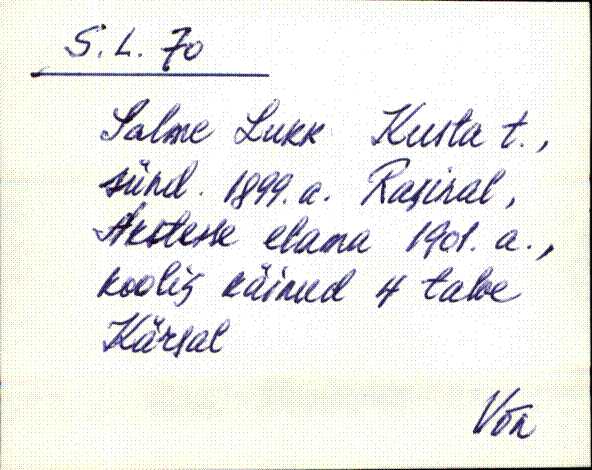 S. L. 70
Salme Lukk Kusta t.,
sünd. 1899. a. Rasinal,
Akstesse elama 1901. a.,
koolis käinud 4 talve
Kärsal
Võn